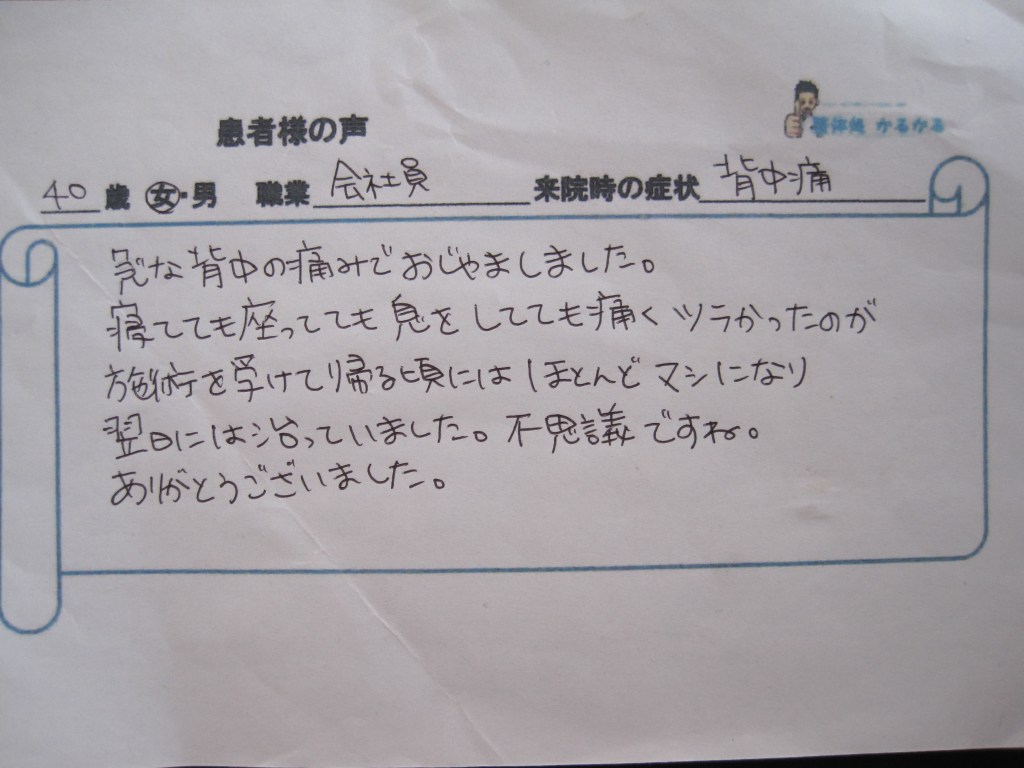 患者様の声
整体処 かるかる
40 歳 女・男 職業 会社員 来院時の症状 背中痛
急な背中の痛みでおじゃましました。
寝てても座ってても息をしてても痛くツラかったのが
施術を受けて帰る頃にはほとんどマシになり
翌日には治っていました。不思議ですね。
ありがとうございました。